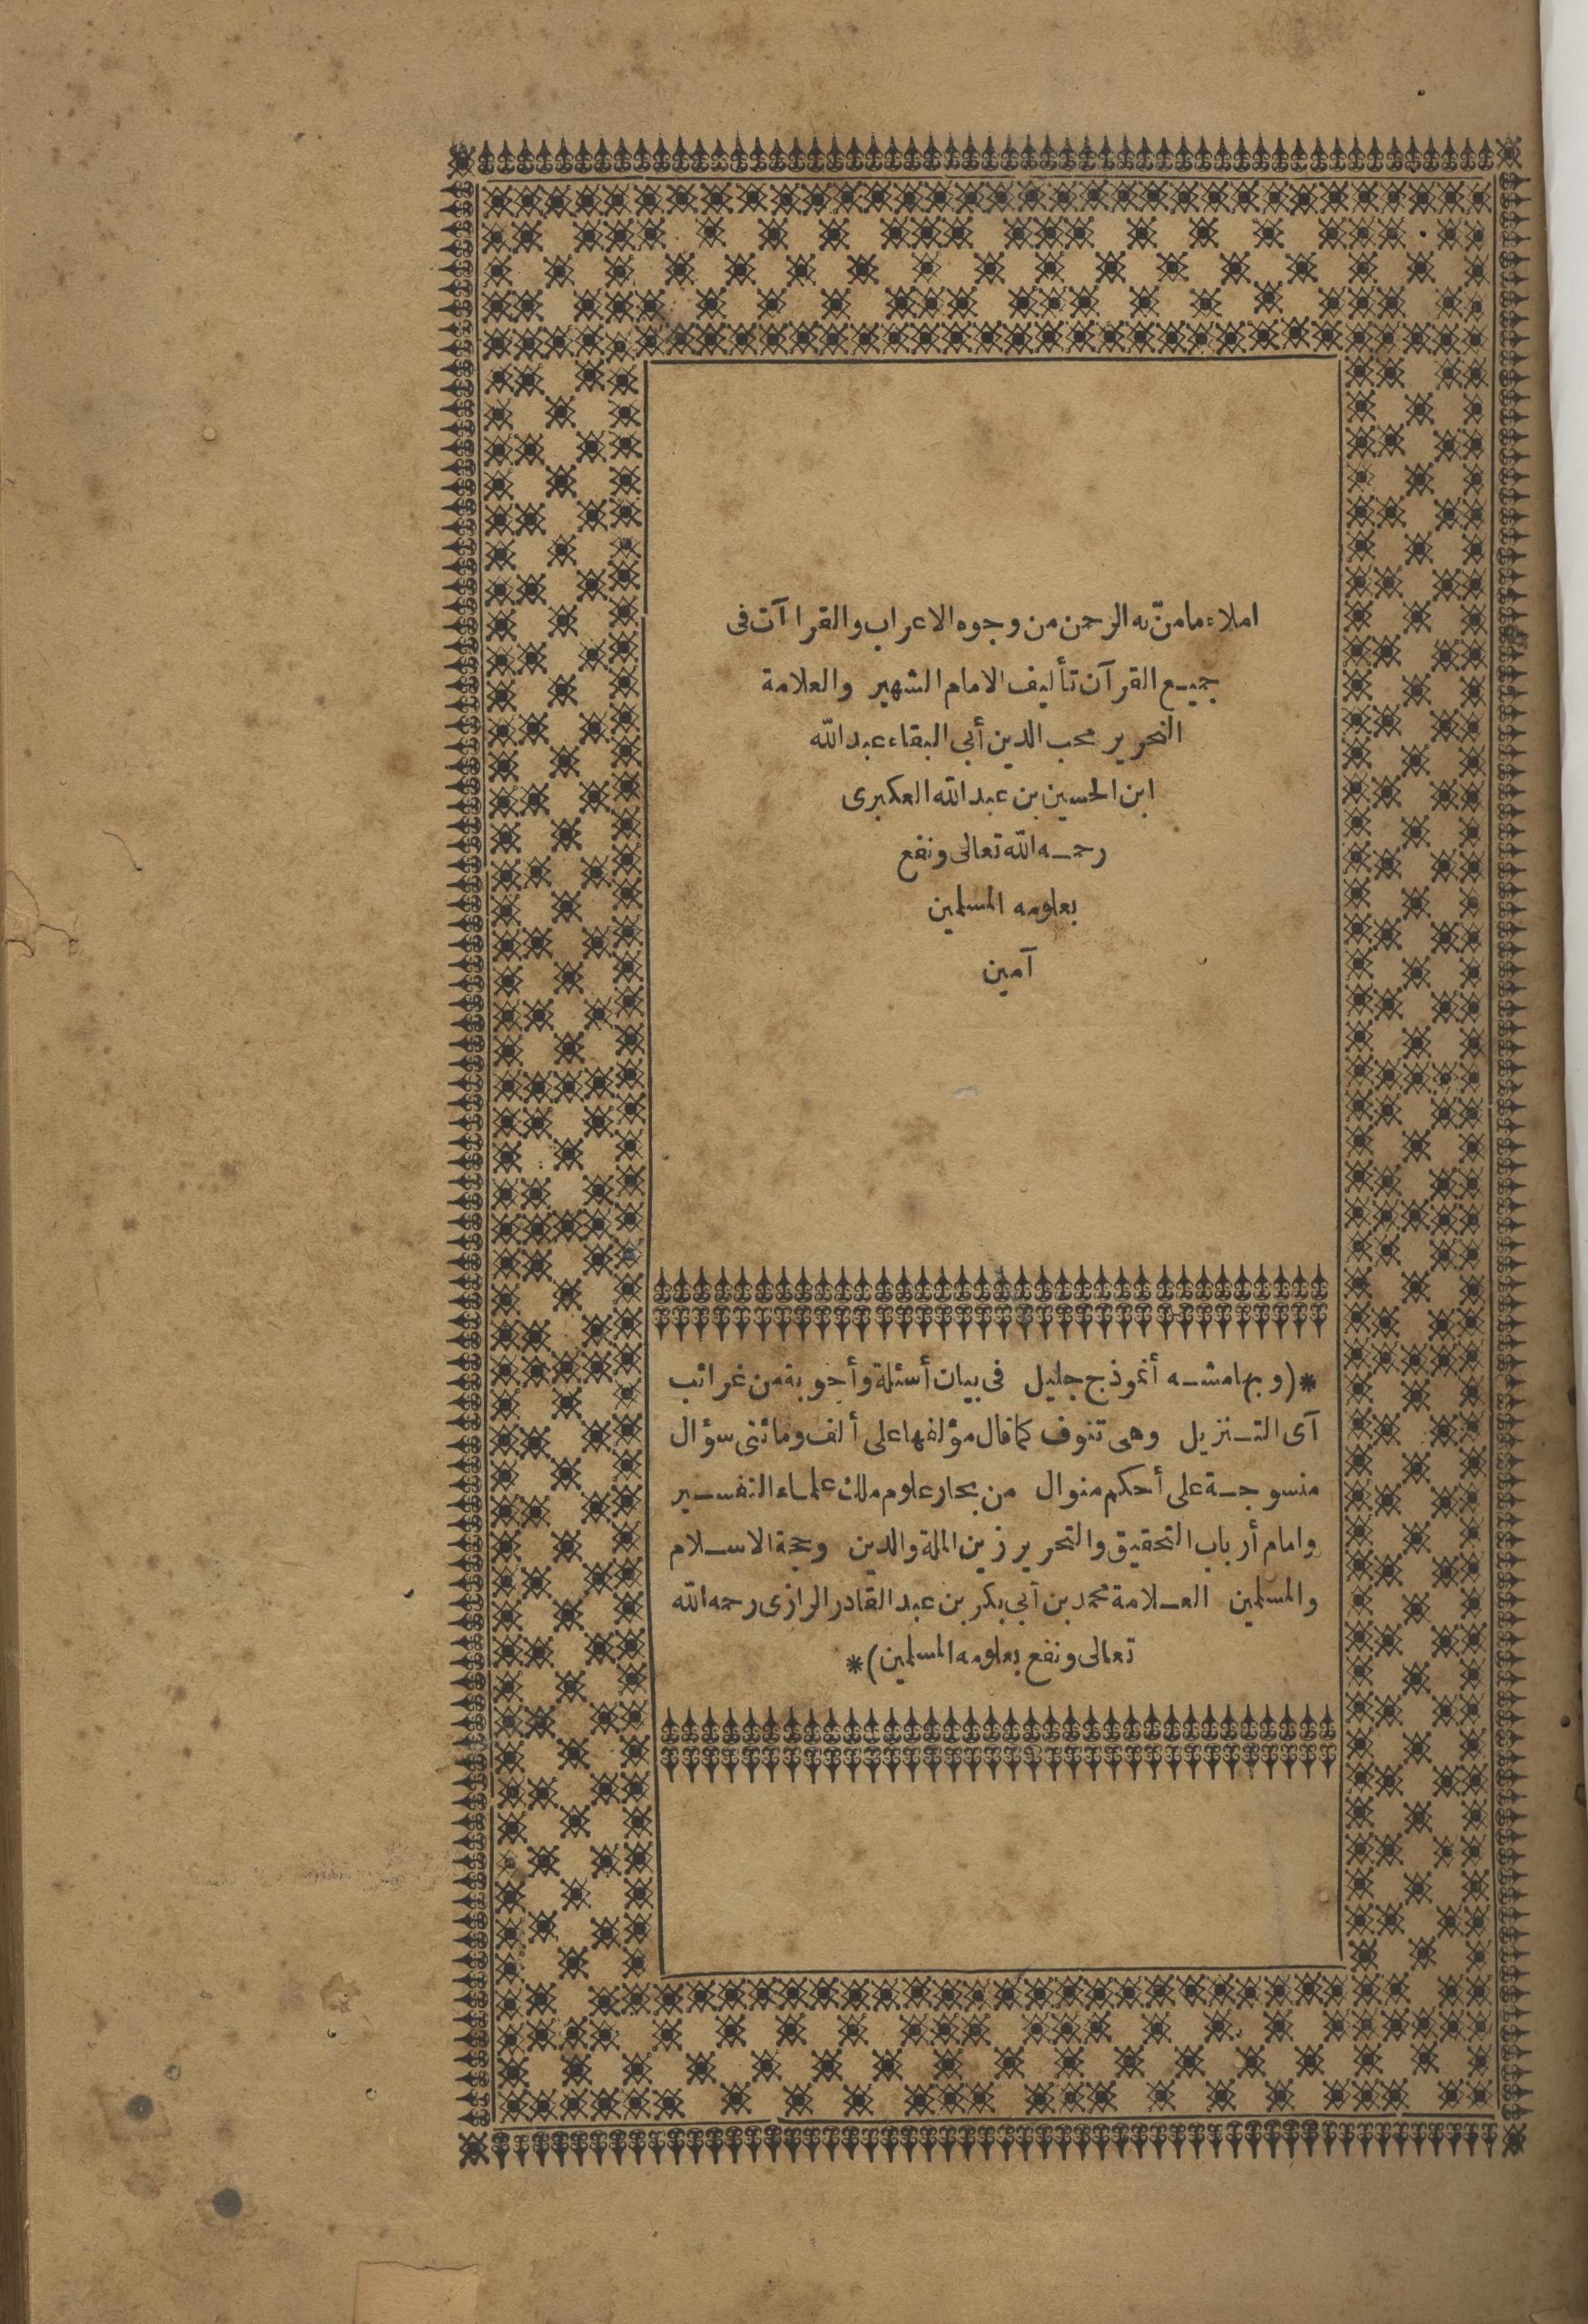 املاء مامنّ به الرحمن من وجوه الاعراب والقراآت فى
جميع القرآن تأليف الامام الشهير والعلامة
النحرير محب الدين أبى البقاء عبد الله
ابن الحسين بن عبد الله العكبرى
رحمه الله تعالى ونفع
بعلومه المسلمين
آمين
*(وبهامشه أنموذج جليل فى بيان أسئلة وأجوبة من غرائب
آى التنزيل وهى تنوف كما قال مؤلفها على ألف ومائتى سؤال
منسوجة على أحكم منوال من بحار علوم ملك علماء التفسير
وامام أرباب التحقيق والتحرير زين الملة والدين وحجة الاسلام
والمسلمين العلامة محمد بن أبى بكر بن عبد القادر الرازى رحمه الله
تعالى ونفع بعلومه المسلمين)*